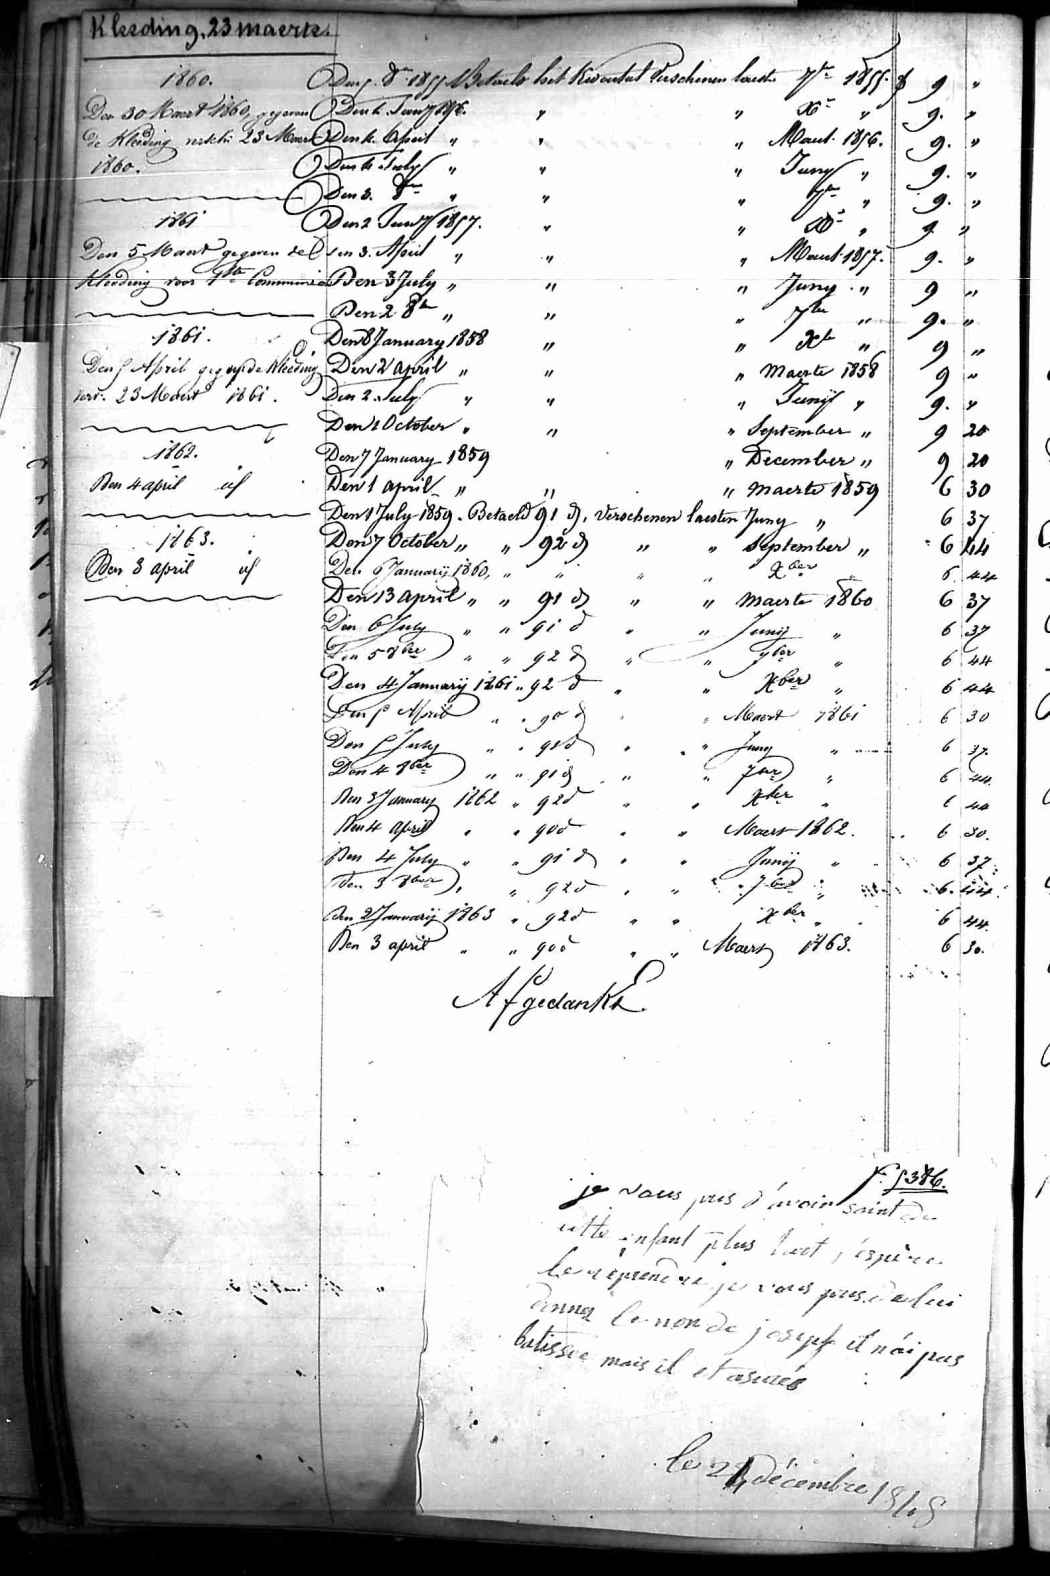 Kleeding, 23 maerte.
1860.
Den 30 Maart 1860, gegeven
de Kleeding versch: 23 Maert
1860.
1861
Den 5 Maart gegeven de
Kleeding voor 1ste Communie
1861.
Den 5 April geg. de Kleeding
vers. 23 Maart 1861.
1862.
Den 4 april id
1863.
Den 3 april id
Den 5 8er 1855 Betaeld het Kwartal Verschenen laesten 7er 1855 f 9 "
Den 4 January 1856. " " Xr " 9. "
Den 4 April " " " Maart 1856. 9. "
Den 4 July " " " Juny " 9. "
Den 3. 8er " " " 7er " 9. "
Den 2 January 1857. " " Xr " 9 "
Den 3. April " " " Maart 1857. 9. "
Den 3 July " " " Juny " 9 "
Den 2 8er " " " 7ber " 9. "
Den 8 January 1858 " " Xr " 9 "
Den 2 april " " " Maerte 1858 9 "
Den 2 July " " " Junij " 9. "
Den 1 October " " " September " 9 20
Den 7 January 1859 " December " 9 20
Den 1 april " " " maerte 1859 6 30
Den 1 July 1859. Betaeld 91 d, verschenen laesten Juny " 6 37
Den 7 October " " 92 d " " September " 6 44
Den 6 Januarij 1860, " " " " Xber 6 44
Den 13 april " " 91 d " " maerte 1860 6 37
Den 6 July " " 91 d " " Junij " 6 37
Den 5 8bre " " 92 d " " 7ber " 6 44
Den 4 Januarij 1861 " 92 d " " Xber " 6 44
Den 5 April " " 90 d " Maart 1861 6 30
Den 5 July " " 91 d " " " Juny " 6 37
Den 4 8ber " " 91 d " " 7ber " 6 44
Den 3 January 1862 " 92 d " " Xber " 6 44
Den 4 april " " 90 d " " Maert 1862. 6 30.
Den 4 July " " 91 d " " Junij " 6 37
Den 3 8ber " " 92 d " " 7ber " 6. 44
Den 2 Januarij 1863 " 92 d " " Xber " 6 44
Den 3 april " " 90 d " " Maert 1863. 6 30.
Afgedankt.
F. 5386.
je vous pris d'avoir saint de
cette enfant plus tart j'espère
le reprendre je vous pris de lui
donner le non de joseph il n'ai pas
batissee mais il et asurés
le 24 décembre 1848